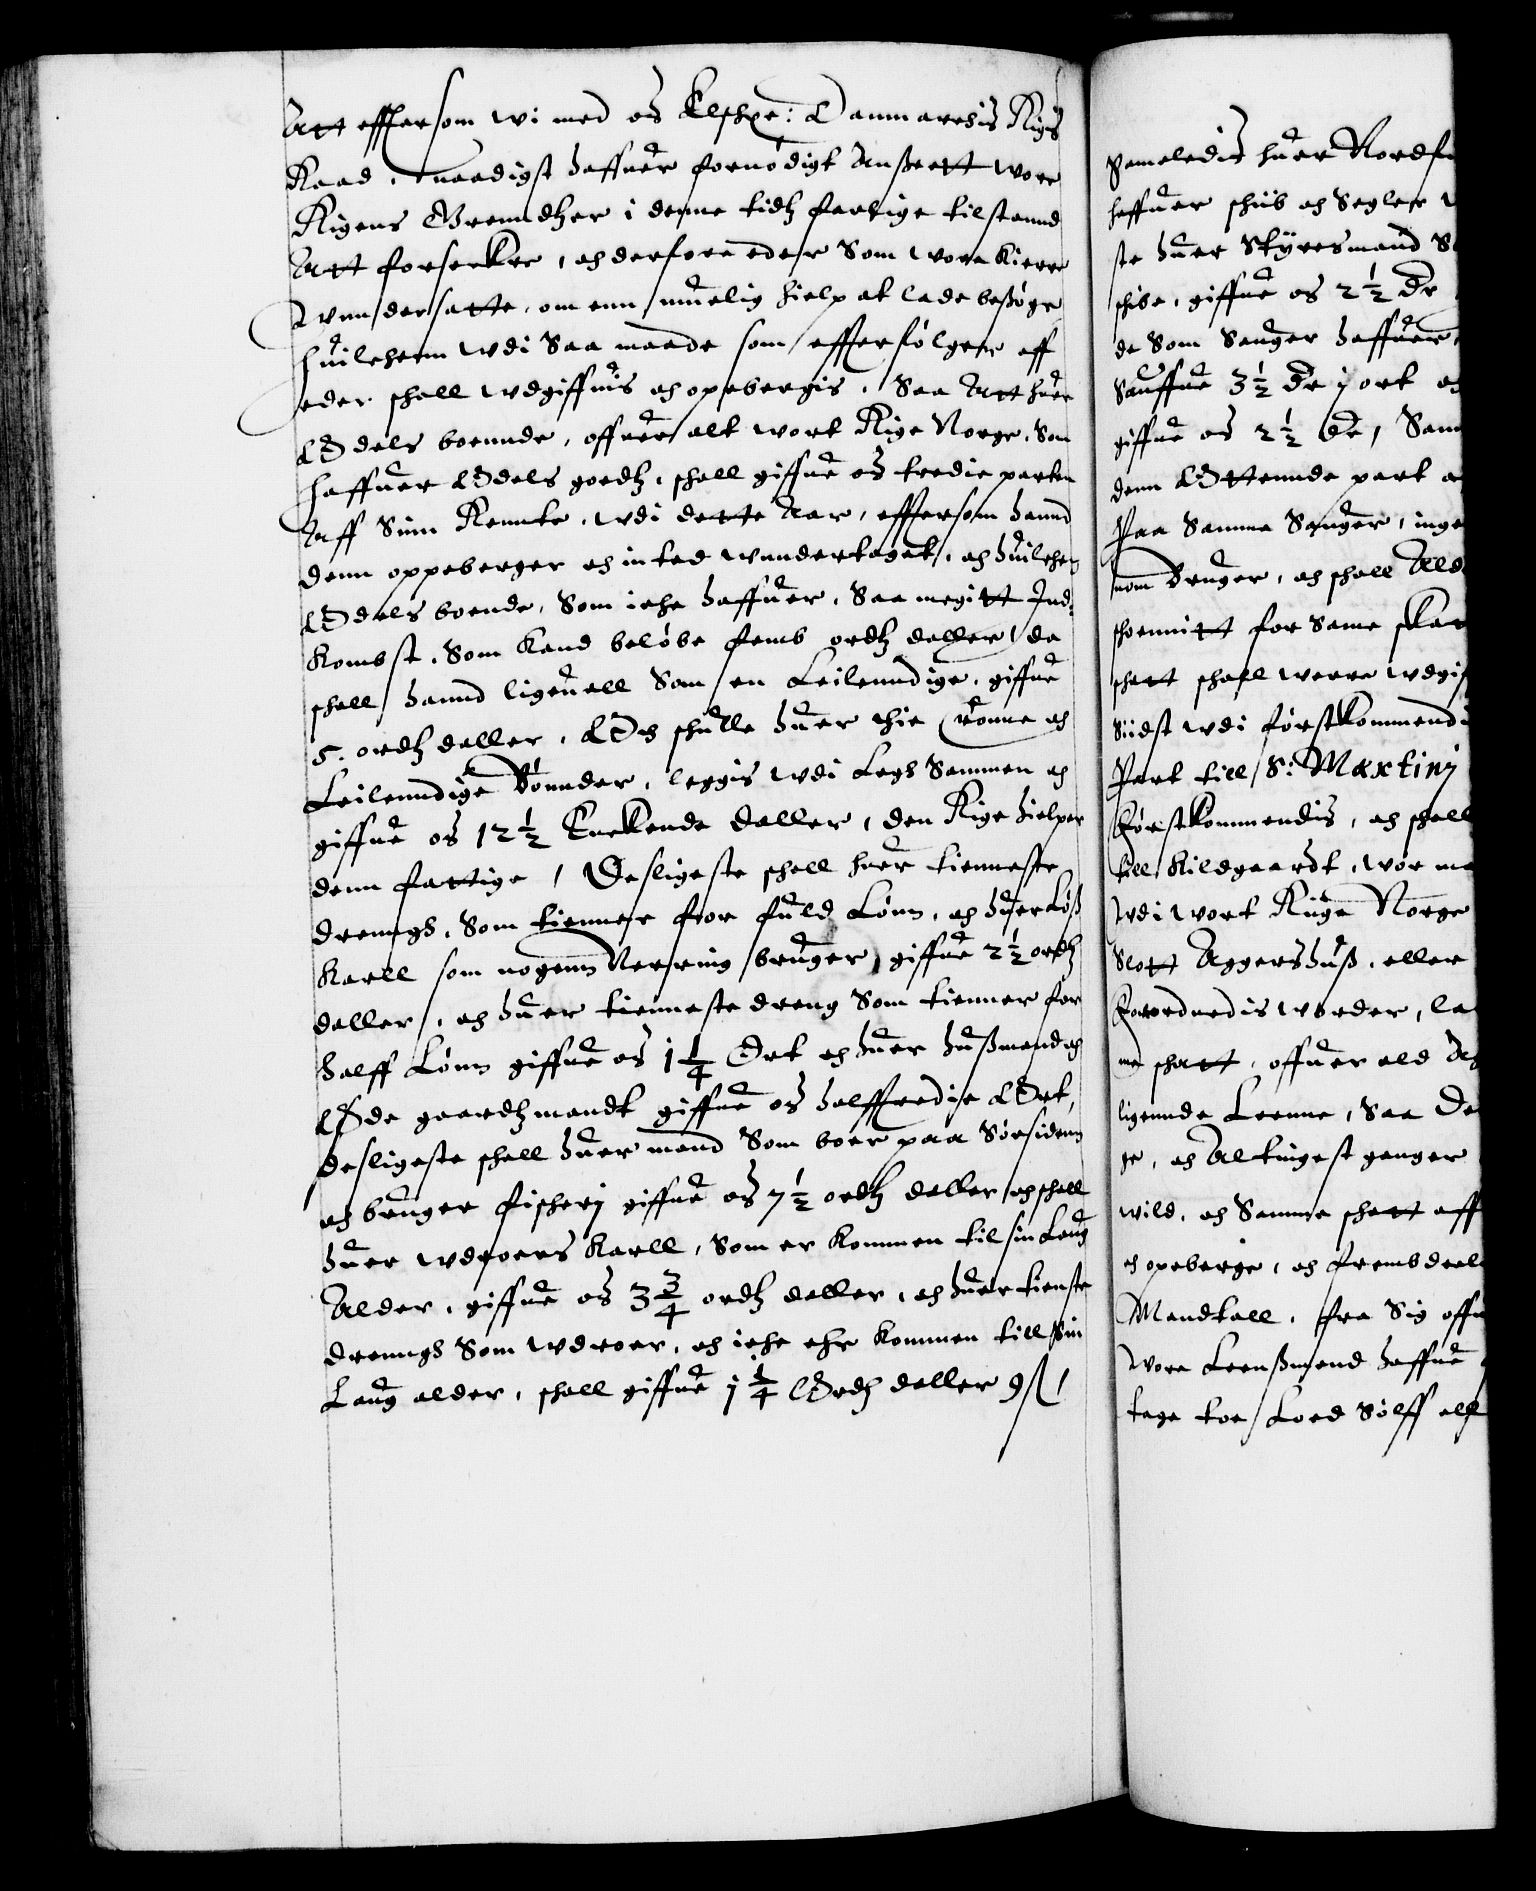 Att efftersom wi med os Elschel: Danmarchis Rigis
Raad, naadigst haffuer fornødigt Anseett wore
Rigens Grenndtzer i denne tidtz farlige tilstannd
Att forsterke, och derfore eder Som wore kierre
Wnndersatte, om enn muelig hielp at lade besøge
huilchenn wdi Saa maade som effterfølger aff
eder schall wdgiffuis och opebergis, Saa Att huer
Odels boennde, offuer alt wort Rige Norge, Som
haffuer Odels goedtz, schall giffue os tredie parten
Aff Sinn Rennte, wdi dette Aar, effttersom hannd
denn oppeberger och inted wnndertaget, och huilchen
Odels boende, Som iche haffuer, Saa megitt Ind=
kombst, Som kand beløbe femb ordtz daller, da
schall hannd ligeuell Som en Leilenndige, giffue
5. ordtz daller, Och schulle huer thie Cronne och
Leilenndige Bønnder, leggis wdi Legs Sammen och
giffue os 12½ Enckende daller, den Rige hielper
denn fattige, Desligeste schall huer tienneste
drenngs, Som tienner for fuld Lønn, och huer Løss
karll som nogenn Nerring bruger, giffue 2½ ordtz
daller, och huer tienneste dreng Som tienner for
halff Lønn giffue os 1¼ Ort och huer hussmand och
Øde gaardtz mandt giffue os halfftredie Ort,
desligeste schall huer mand Som boer paa Sørsidenn
och bruger fischerj giffue os 7½ ordtz daller, och schall
huer wdroers karll, Som er kommen til sin Laug
Alder, giffue os 3¾ ordtz daller, och huer tienste
drenngs Som wdroer, och iche ehr kommen till Sin
Laug alder, schall giffue 1¼ Ordtz daller
Sameledis huer Nordf
haffuer schiib och Segler
ste huer Styresmand
schibe, giffue os 2½ dr
de Som Sauger haffuer
Sauffue 3½ dr j ort och
giffue os 2½ dr, Sam
denn Ottennde part
Paa Samme Sauger, inge
nom bruger, och schall Ald
schonnitt for Same skat
schatt schall werre wdgif
Siidst wdi førstkommendi
Part till S: Martinj
førstkommendis, och schall
till Kildgaardt, wor ma
wdi wort Riige Norge
Slott Aggershuss, eller
forordnedis worder, la
me schatt, offuer ald
ligennde Leenne, Saa
ge, och Altingest ganger
wild, och Samme schatt aff
och opeberge, och frembdeel
Mandtall, fra Sig offu
Wore Leenssmend haffue
tage toe Loed Sølff ell